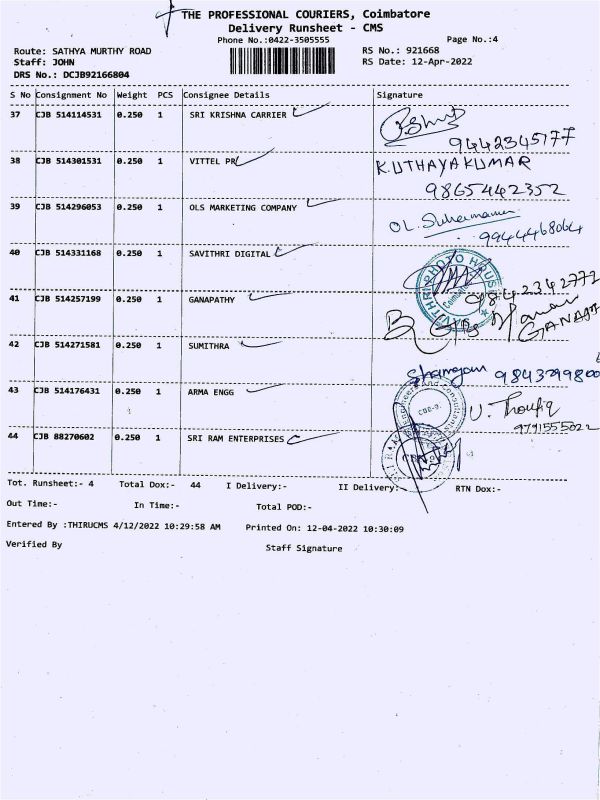 THE PROFESSIONAL COURIERS, Coimbatore
Delivery Runsheet - CMS
Phone No.:0422-3505555
Page No.:4
Route: SATHYA MURTHY ROAD
RS No.: 921668
Staff: JOHN
RS Date: 12-Apr-2022
DRS No.: DCJB92166804
S No Consignment No Weight PCS Consignee Details Signature
37 CJB 514114531 0.250 1 SRI KRISHNA CARRIER
9442345177
38 CJB 514301531 0.250 1 VITTEL PR K.UTHAYAKUMAR
9865442352
39 CJB 514296053 0.250 1 OLS MARKETING COMPANY OL.
9944468064
40 CJB 514331168 0.250 1 SAVITHRI DIGITAL
PHOTO HOUSE
9842342772
41 CJB 514257199 0.250 1 GANAPATHY
42 CJB 514271581 0.250 1 SUMITHRA
43 CJB 514176431 0.250 1 ARMA ENGG U. Thoufiq
9791555022
44 CJB 88270602 0.250 1 SRI RAM ENTERPRISES
Tot. Runsheet:- 4 Total Dox:- 44 I Delivery:- II Delivery:- RTN Dox:-
Out Time:- In Time:- Total POD:-
Entered By :THIRUCMS 4/12/2022 10:29:58 AM Printed On: 12-04-2022 10:30:09
Verified By Staff Signature